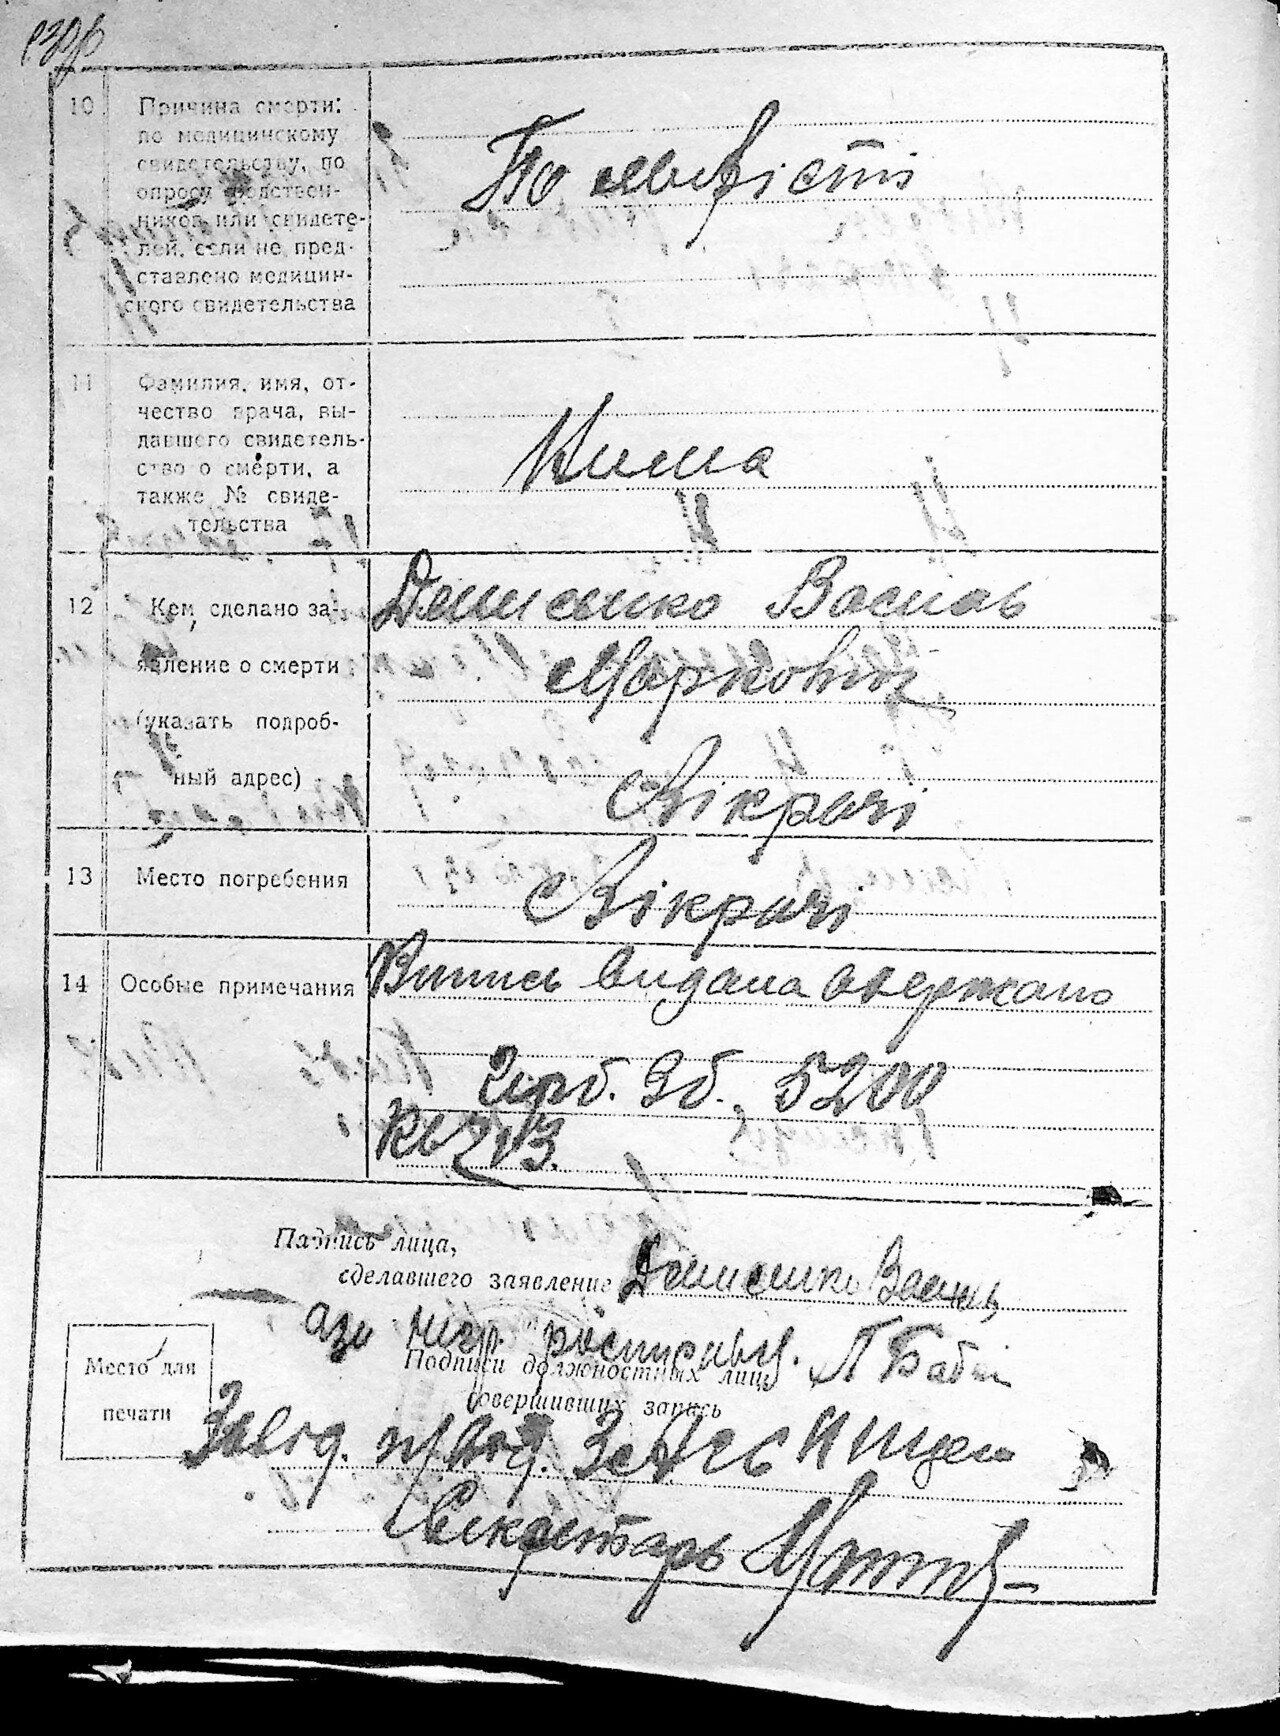 10 Причина смерти:
по медицинскому
свидетельству, по
опросу родствен-
ников или свидете-
лей, если не пред-
ставлено медицин-
ского свидетельства
По
11 Фамилия, имя, от-
чество врача, вы-
давшего свидетель-
ство о смерти, а
также № свиде-
тельства
Нима
12 Кем сделано за-
явление о смерти
(указать подроб-
ный адрес)
Денисенко Василь
Маркович
Вікрачі
13 Место погребения
Вікрачі
14 Особые примечания
Випись видана одержано
герб. Зб. 5200
Подпись лица,
сделавшего заявление Денисенко Василь
Подписи должностных лиц,
совершивших запись
Место для
печати
Завід. ЗАГС
Секретарь